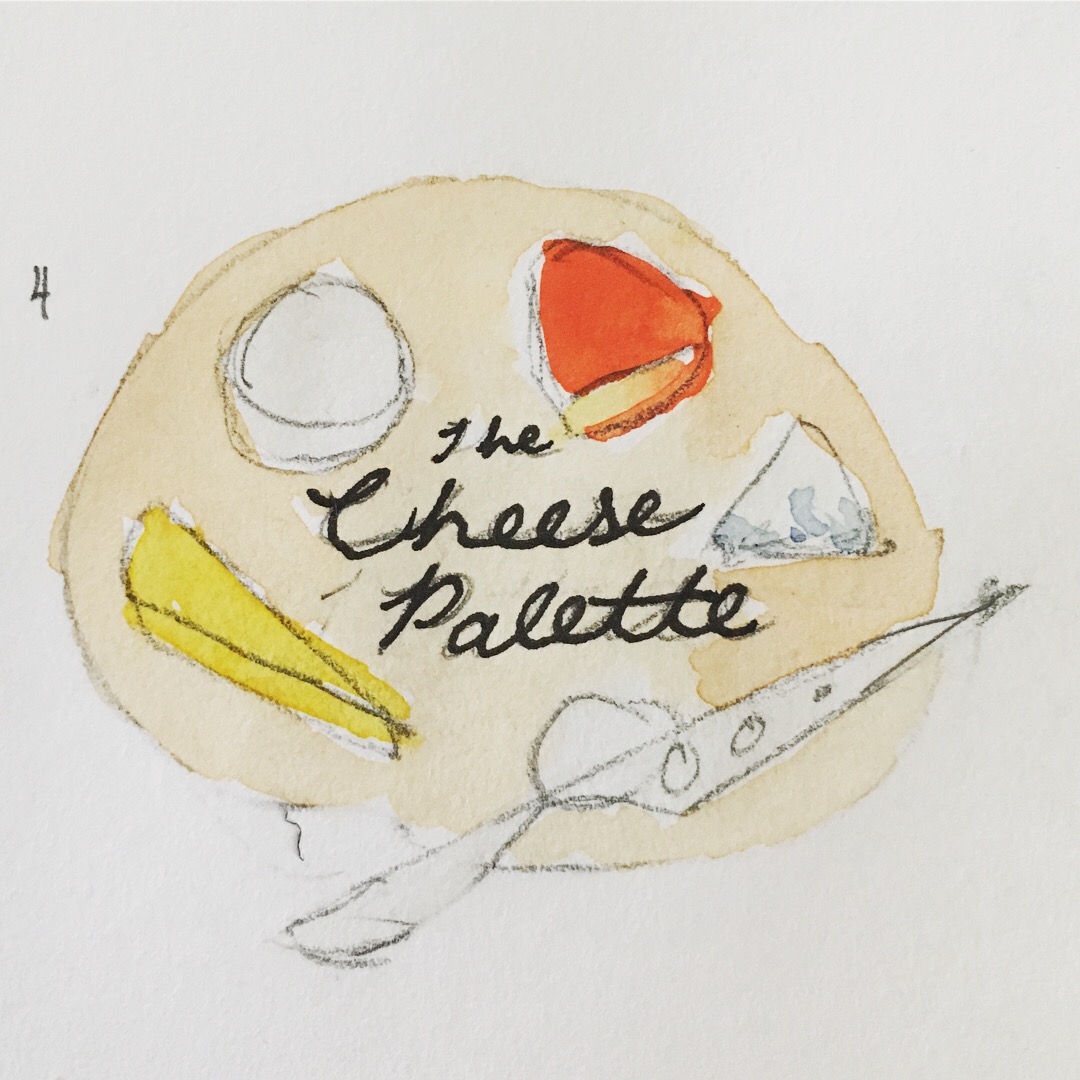 4
The
Cheese
Palette